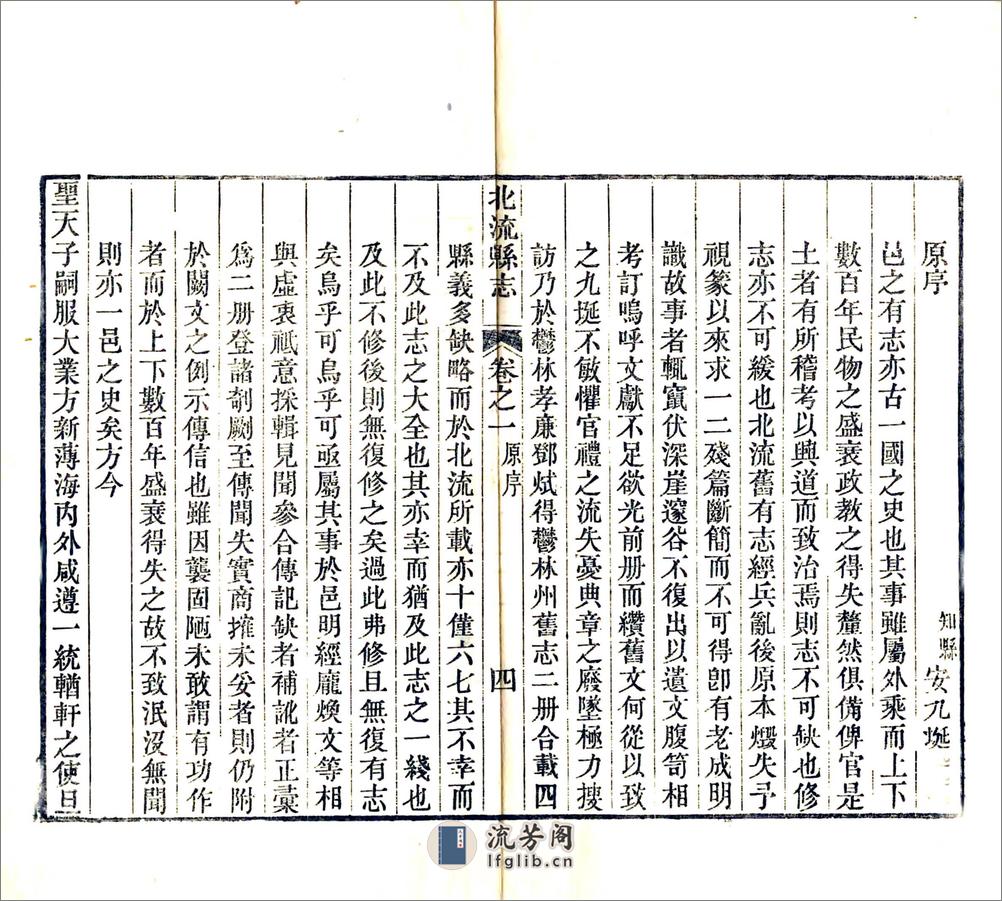 原序
知縣安九埏
邑之有志亦古一國之史也其事雖屬外乘而上下
數百年民物之盛衰政教之得失釐然俱備俾官是
土者有所稽考以興道而致治焉則志不可缺也修
志亦不可緩也北流舊有志經兵亂後原本燬失予
視篆以來求一二殘篇斷簡而不可得卽有老成明
識故事者輒竄伏深崖邃谷不復出以遺文腹笥相
考訂嗚呼文獻不足欲光前册而纘舊文何從以致
之九埏不敏懼官禮之流失憂典章之廢墜極力搜
訪乃於鬱林孝廉鄧斌得鬱林州舊志二册合載四
北流縣志
卷之一
原序
四
縣義多缺略而於北流所載亦十僅六七其不幸而
不及此志之大全也其亦幸而猶及此志之一綫也
及此不修後則無復修之矣過此弗修且無復有志
矣烏乎可烏乎可亟屬其事於邑明經龐煥文等相
與虛衷祗意採輯見聞參合傳記缺者補訛者正彙
爲二册登諸剞劂至傳聞失實商搉未妥者則仍附
於闕文之例示傳信也雖因襲固陋未敢謂有功作
者而於上下數百年盛衰得失之故不致泯沒無聞
則亦一邑之史矣方今
聖天子嗣服大業方新薄海內外咸遵一統輶軒之使旦
流芳阁
lfglib.cn